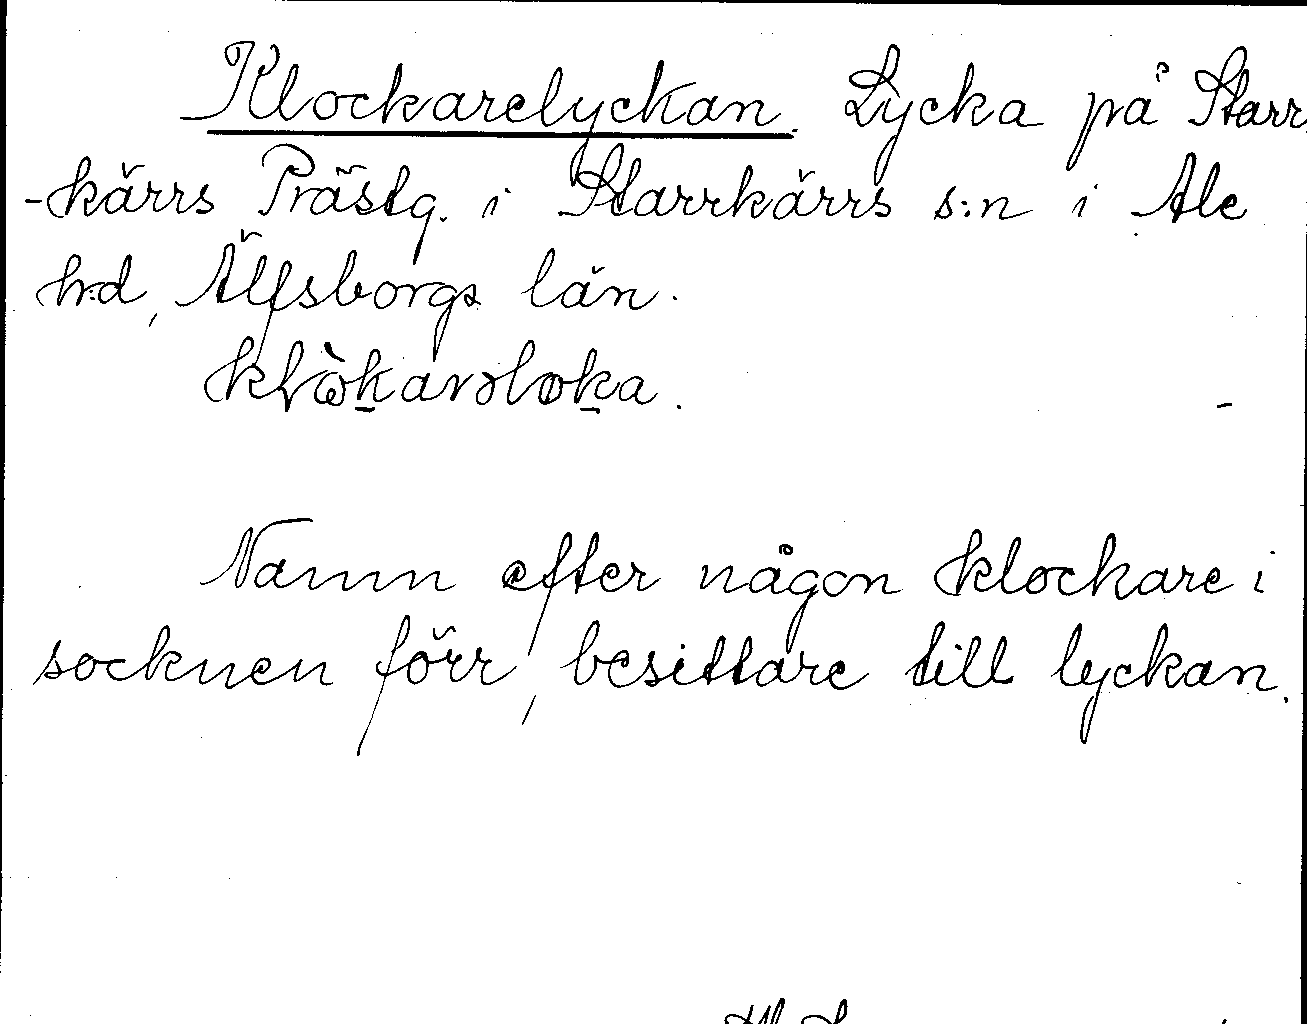 Klockarelyckan. Lycka på Starr
-kärrs Prästg. i Starrkärrs s:n i Ale
h:d, Älfsborgs län.
Namn efter någon klockare i
socknen förr, besittare till lyckan.